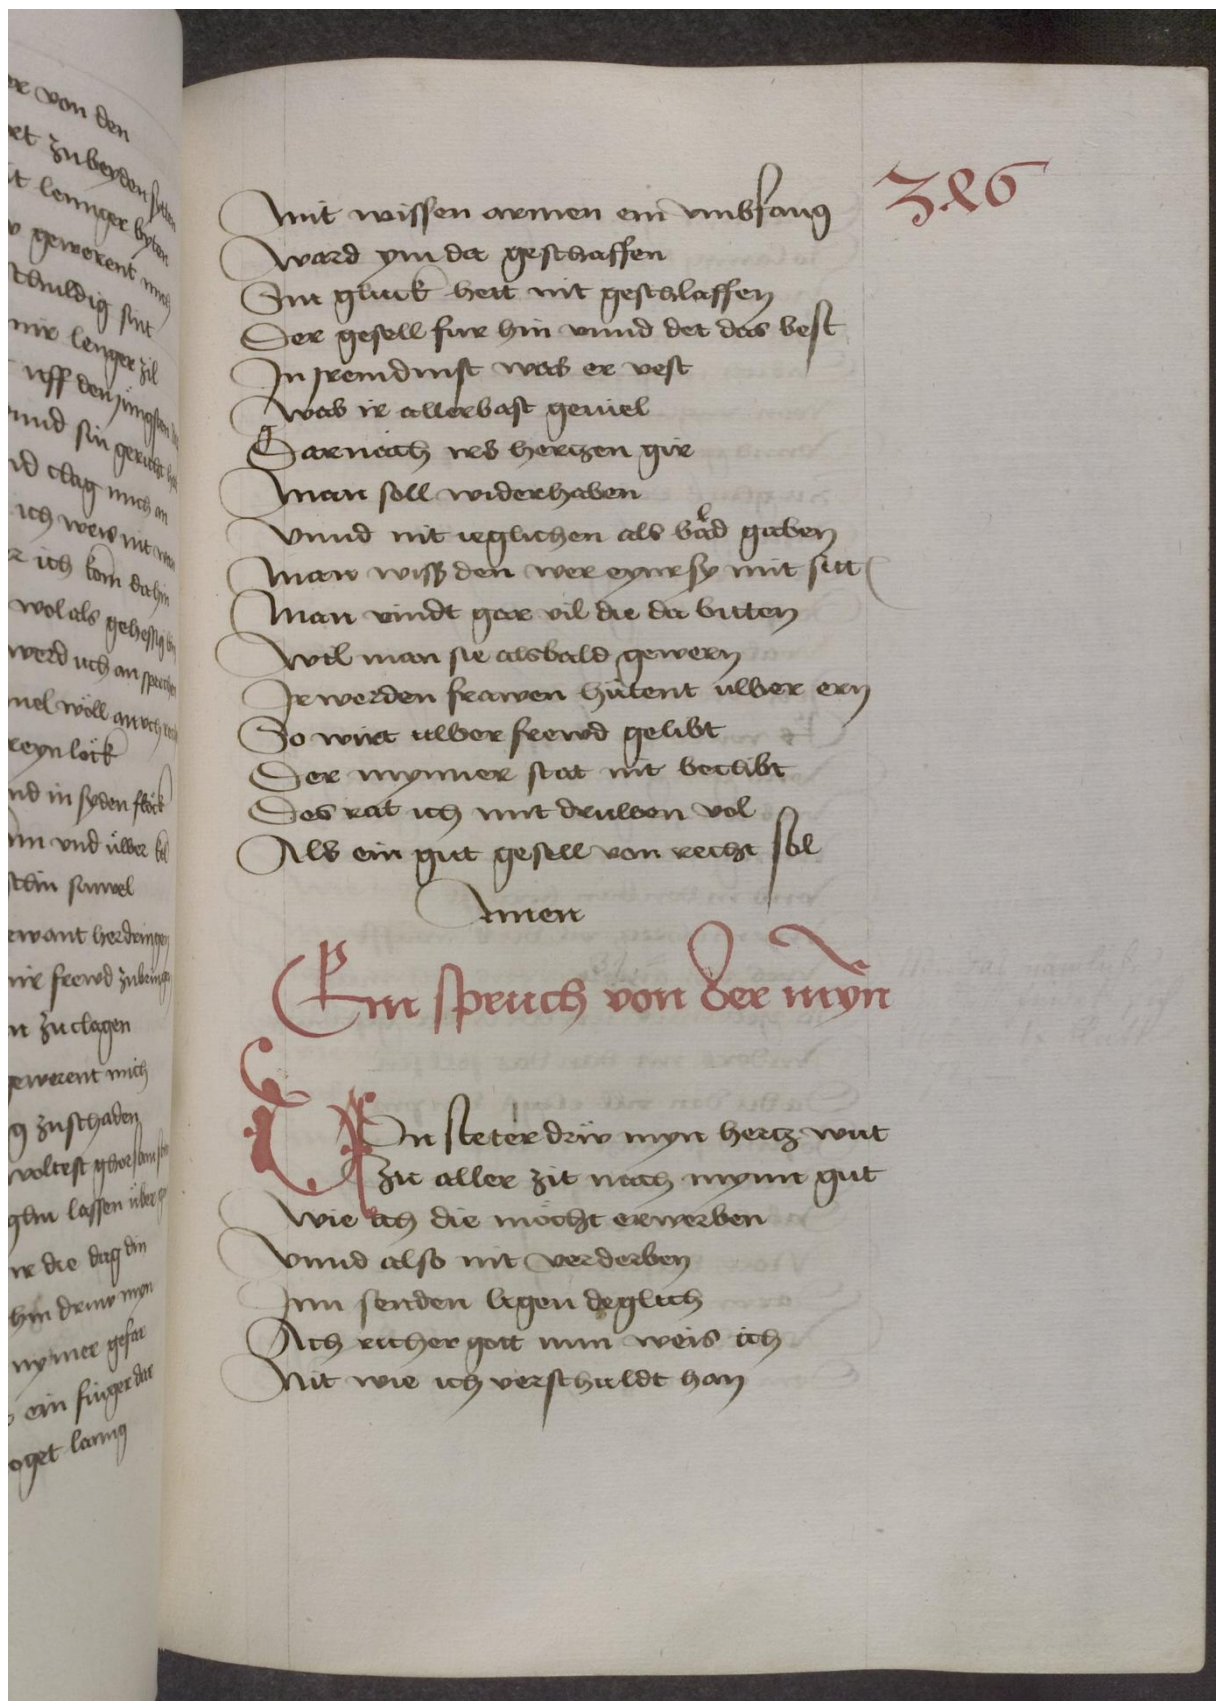 er von den
ret zu beyden sytten
it lennger byten
gewerent mich
schuldig sint
mir lenger zil
uff den jüngsten
unnd sin gericht
nd clag mich an
ich weis nit
er ich kom dahin
wol als gehessig bin
werd uch an sprechen
reyn löck
nd in syden flöck
vnd ülber
schin samel
gewant herdringen
mir frewd zubringen
zu clagen
gewerent mich
zuschaden
woltest ghorsam
lassen über
ir die dag din
hin driuv myn
nymer gefar
ein finger dar
oget lanng
326
Mit wissen armen ein vmbfang
Ward ym da geschaffen
Sin gluck hett nit geschlaffen
Der gesell fur hin vnnd det das best
In fremdinst was er vest
Was ir allerbast geviel
Darnach irs hertzen gir
Man soll widerhaben
Vnnd nit ieglichen als bald gaben
Man wiss den wer eynr sy mit sitt
Man vindt gar vil die da bitten
Wil man sie alsbald gewern
Ir werden frawen hütent ulber ern
So wirt ulber frewd gelibt
Der mynner stat nit beclibt
Des rat ich mit druwen vol
Als ein gut gesell von recht sol
Amen
Ein spruch von der myn
In steter drüv myn hertz wut
Zu aller zit nach mynn gut
Wie ich die möcht erwerben
Vnnd also nit verderben
Inn senden ligen deglich
Ach richer gott nun weis ich
Nit wie ich verschuldt han